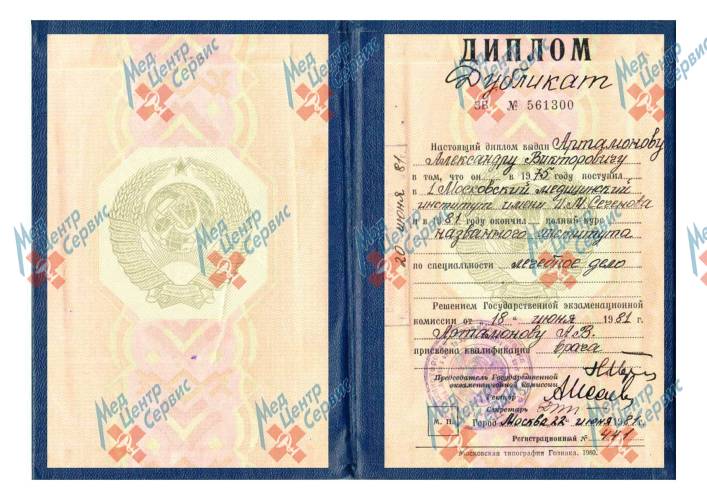 ДИПЛОМ
Дубликат
ЗВ № 561300
Настоящий диплом выдан Артамонову
Александру Викторовичу
в том, что он в 1975 году поступил
в 1 Московский медицинский
институт имени И.М. Сеченова
и в 1981 году окончил полный курс
названного института
по специальности лечебное дело
Решением Государственной экзаменационной
комиссии от 18 июня 1981 г.
Артамонову А.В.
присвоена квалификация врача
Председатель Государственной
экзаменационной комиссии
Ректор
Секретарь
М. П. Город Москва 22 июня 1981 г.
Регистрационный № 441
Московская типография Гознака. 1980.
20 июня 81
Мед Центр Сервис
Мед Центр Сервис
Мед Центр Сервис
Мед Центр Сервис
Мед Центр Сервис
Мед Центр Сервис
Мед Центр Сервис
Мед Центр Сервис
Мед Центр Сервис